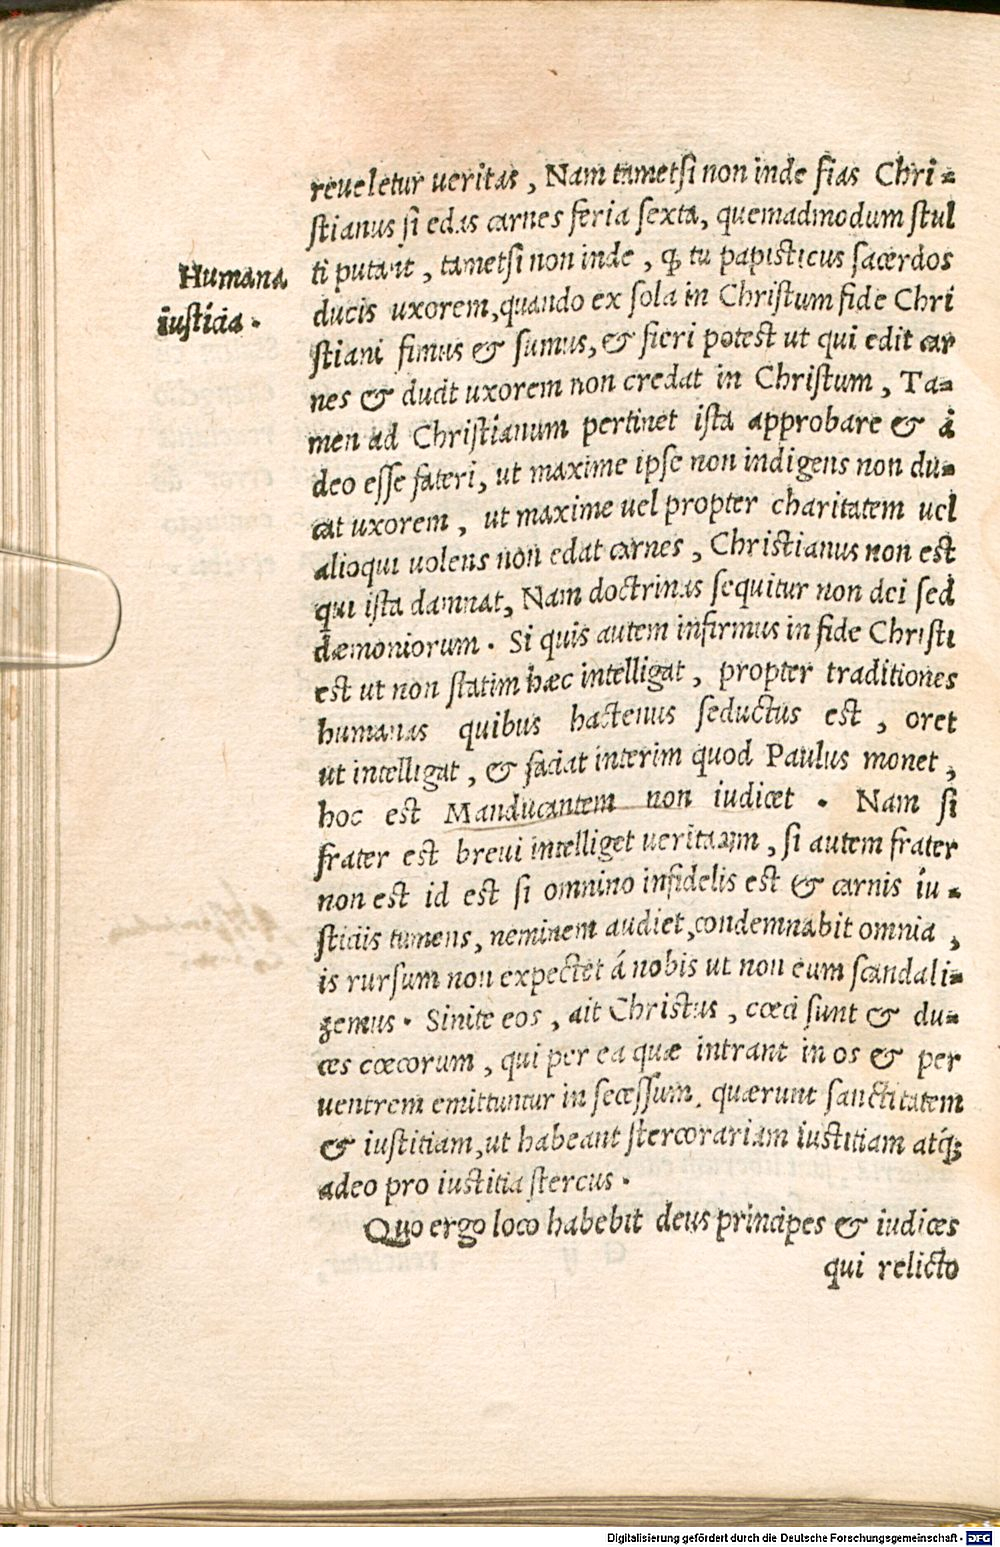 reueletur ueritas, Nam tametsi non inde fias Chri=
stianus si edas carnes feria sexta, quemadmodum stul
ti putant, tametsi non inde, ꝙ tu papisticus sacerdos
Humana
iusticia.
ducis uxorem, quando ex sola in Christum fide Chri
stiani fimus & sumus, & fieri potest ut qui edit car
nes & ducit uxorem non credat in Christum, Ta=
men ad Christianum pertinet ista approbare & à
deo esse fateri, ut maxime ipse non indigens non du=
cat uxorem, ut maxime uel propter charitatem uel
alioqui uolens non edat carnes, Christianus non est
qui ista damnat, Nam doctrinas sequitur non dei sed
dæmoniorum. Si quis autem infirmus in fide Christi
est ut non statim hæc intelligat, propter traditiones
humanas quibus hactenus seductus est, oret
ut intelligat, & faciat interim quod Paulus monet,
hoc est Manducantem non iudicet. Nam si
frater est breui intelliget ueritatem, si autem frater
non est id est si omnino infidelis est & carnis iu=
sticiis tumens, neminem audiet, condemnabit omnia,
is rursum non expectet á nobis ut non eum scandali=
zemus. Sinite eos, ait Christus, cœci sunt & du=
ces cœcorum, qui per ea quæ intrant in os & per
uentrem emittuntur in secessum, quærunt sanctitatem
& iustitiam, ut habeant stercorariam iustitiam atq;
adeo pro iustitia stercus.
Quo ergo loco habebit deus principes & iudices
qui relicto
Digitalisierung gefördert durch die Deutsche Forschungsgemeinschaft - DFG